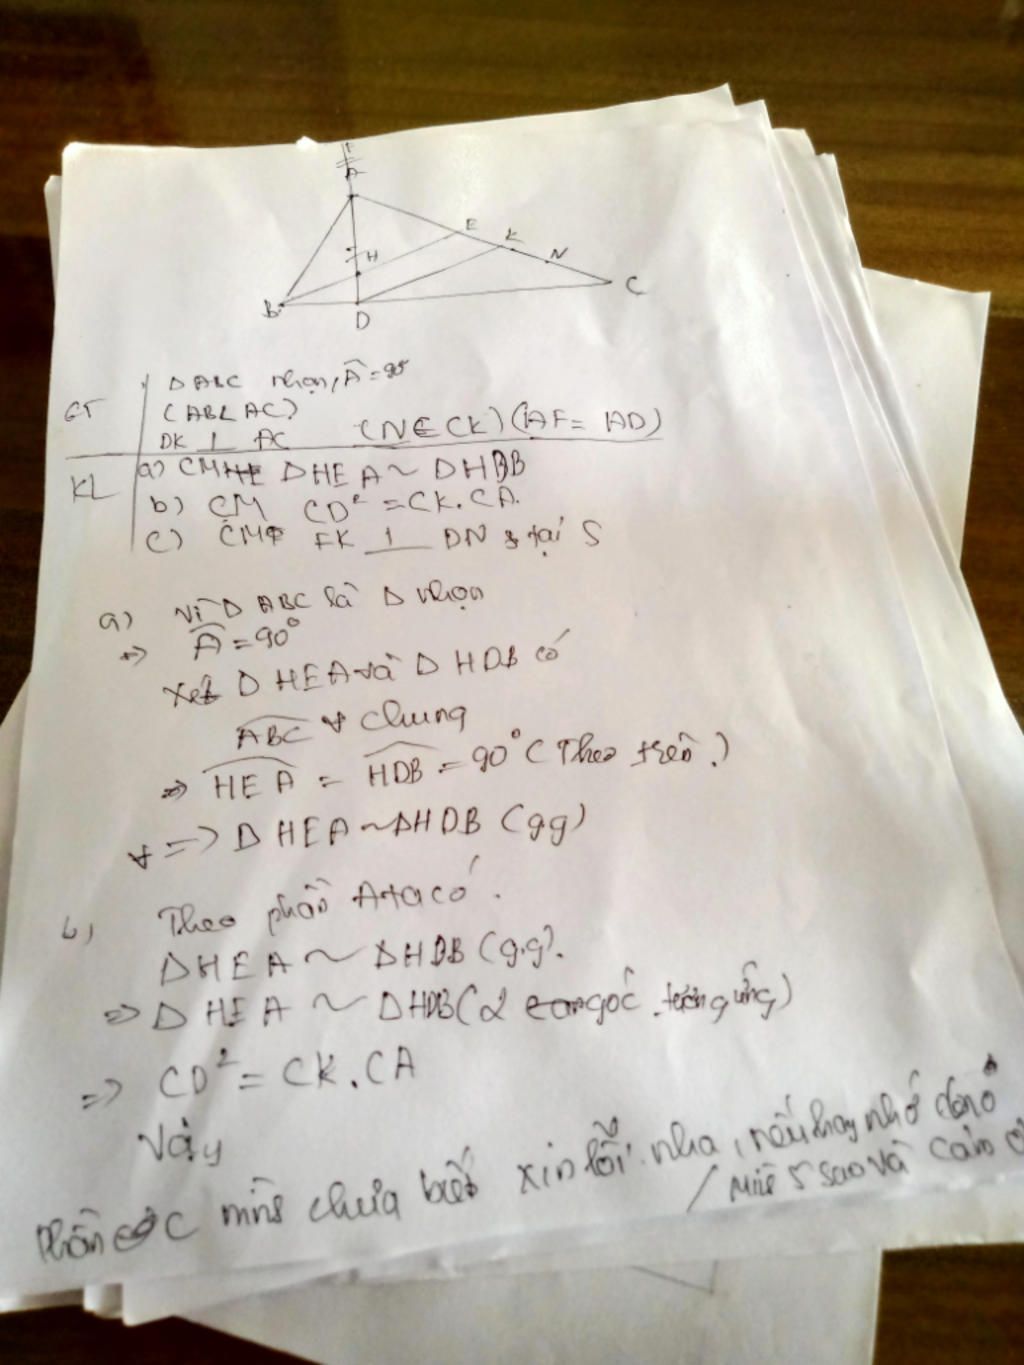 F
A
E
K
N
H
C
B
D
GT
Δ ABC nhọn, Â = 90°
(AB < AC)
DK ⊥ AC (N ∈ CK) (AF = AD)
KL
a) CM Δ HEA ~ Δ HDB
b) CM CD² = CK.CA.
c) CM FK ⊥ DN tại S
a) Vì Δ ABC là Δ nhọn
=> Â = 90°
Xét Δ HEA và Δ HDB có
ABC chung
=> HEA = HDB = 90° (Theo trên)
=> Δ HEA ~ Δ HDB (gg)
b) Theo phần A ta có.
Δ HEA ~ Δ HDB (g.g).
=> Δ HEA ~ Δ HDB (2 góc tương ứng)
=> CD² = CK.CA
Vậy
Phần C mình chưa biết xin lỗi nha, nếu hay nhớ cho
mik 5 sao và cảm ơn